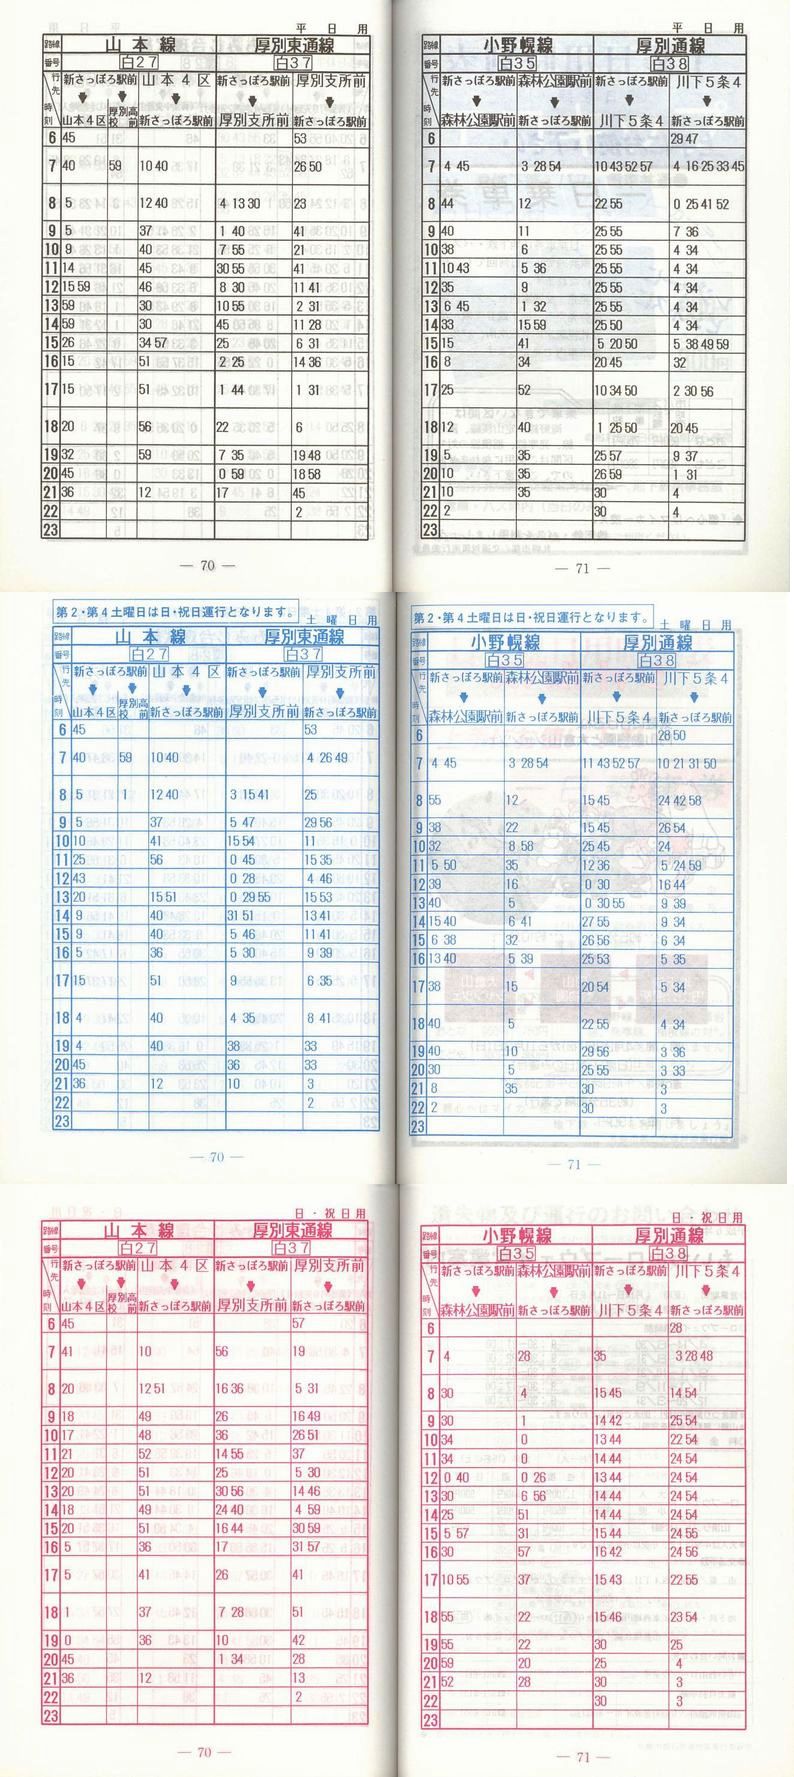 平日用
路線 山本線 厚別東通線
番号 白27 白37
行先 新さっぽろ駅前 山本4区 新さっぽろ駅前 厚別支所前
時刻 山本4区 厚別高校前 新さっぽろ駅前 厚別支所前 新さっぽろ駅前
6 45 53
7 40 59 10 40 26 50
8 5 12 40 4 13 30 23
9 5 37 1 40 41
10 9 40 7 55 21
11 14 45 30 55 41
12 15 59 46 8 30 11 41
13 59 30 10 55 2 31
14 59 30 45 11 28
15 26 34 57 25 6 31
16 15 51 2 25 14 36
17 15 51 1 44 1 31
18 20 56 22 6
19 32 59 7 35 19 48
20 45 0 59 18 58
21 36 12 17 45
22 2
23
— 70 —
平日用
路線 小野幌線 厚別通線
番号 白35 白38
行先 新さっぽろ駅前 森林公園駅前 新さっぽろ駅前 川下5条4
時刻 森林公園駅前 新さっぽろ駅前 川下5条4 新さっぽろ駅前
6 29 47
7 4 45 3 28 54 10 43 52 57 4 16 25 33 45
8 44 12 22 55 0 25 41 52
9 40 11 25 55 7 36
10 38 6 25 55 4 34
11 10 43 5 36 25 55 4 34
12 35 9 25 55 4 34
13 6 45 1 32 25 55 4 34
14 33 15 59 25 50 4 34
15 15 41 5 20 50 5 38 49 59
16 8 34 20 45 32
17 25 52 10 34 50 2 30 56
18 12 40 1 25 50 20 45
19 5 35 25 57 9 37
20 10 35 26 59 1 31
21 10 35 30 4
22 2 30 4
23
— 71 —
第2・第4土曜日は日・祝日運行となります。
土曜日用
路線 山本線 厚別東通線
番号 白27 白37
行先 新さっぽろ駅前 山本4区 新さっぽろ駅前 厚別支所前
時刻 山本4区 厚別高校前 新さっぽろ駅前 厚別支所前 新さっぽろ駅前
6 45 53
7 40 59 10 40 4 26 49
8 5 1 12 40 3 15 41 25
9 5 37 5 47 29 56
10 10 41 15 54 11
11 25 56 0 45 15 35
12 43 0 28 4 46
13 20 15 51 0 29 55 15 53
14 9 40 31 51 13 41
15 9 40 5 46 11 41
16 5 36 5 30 9 39
17 15 51 9 6 35
18 4 40 4 35 8 41
19 4 40 38 33
20 45 36 33
21 36 12 10 3
22 2
23
— 70 —
第2・第4土曜日は日・祝日運行となります。
土曜日用
路線 小野幌線 厚別通線
番号 白35 白38
行先 新さっぽろ駅前 森林公園駅前 新さっぽろ駅前 川下5条4
時刻 森林公園駅前 新さっぽろ駅前 川下5条4 新さっぽろ駅前
6 28 50
7 4 45 3 28 54 11 43 52 57 10 21 31 50
8 55 12 15 45 24 42 58
9 38 22 15 45 26 54
10 32 8 58 25 45 24
11 5 50 35 12 36 5 24 59
12 39 16 0 30 16 44
13 40 5 0 30 55 9 39
14 15 40 6 41 27 55 9 34
15 6 38 32 26 56 6 34
16 13 40 5 39 25 53 5 35
17 38 15 20 54 5 34
18 40 5 22 55 4 34
19 40 10 29 56 3 36
20 30 5 25 55 3 33
21 8 35 30 3
22 2 30 3
23
— 71 —
日・祝日用
路線 山本線 厚別東通線
番号 白27 白37
行先 新さっぽろ駅前 山本4区 新さっぽろ駅前 厚別支所前
時刻 山本4区 厚別高校前 新さっぽろ駅前 厚別支所前 新さっぽろ駅前
6 45 57
7 41 10 56 19
8 20 12 51 16 36 5 31
9 18 49 26 16 49
10 17 48 36 26 51
11 21 52 14 55 37
12 20 51 25 5 30
13 20 51 30 56 14 46
14 18 49 24 40 4 59
15 20 51 16 44 30 59
16 5 36 17 31 57
17 5 41 26 41
18 1 37 7 28 51
19 0 36 10 42
20 45 1 34 28
21 36 12 13
22 2
23
— 70 —
日・祝日用
路線 小野幌線 厚別通線
番号 白35 白38
行先 新さっぽろ駅前 森林公園駅前 新さっぽろ駅前 川下5条4
時刻 森林公園駅前 新さっぽろ駅前 川下5条4 新さっぽろ駅前
6 28
7 4 28 35 3 28 48
8 30 4 15 45 14 54
9 30 1 14 42 25 54
10 34 0 13 44 22 54
11 34 0 14 44 24 54
12 0 40 0 26 14 44 24 54
13 30 6 56 14 44 24 54
14 25 51 14 44 24 54
15 5 57 31 15 44 24 55
16 30 57 16 42 24 56
17 10 55 37 15 43 22 55
18 55 22 15 46 23 54
19 55 22 30 25
20 59 20 25 4
21 52 28 30 3
22 30 3
23
— 71 —